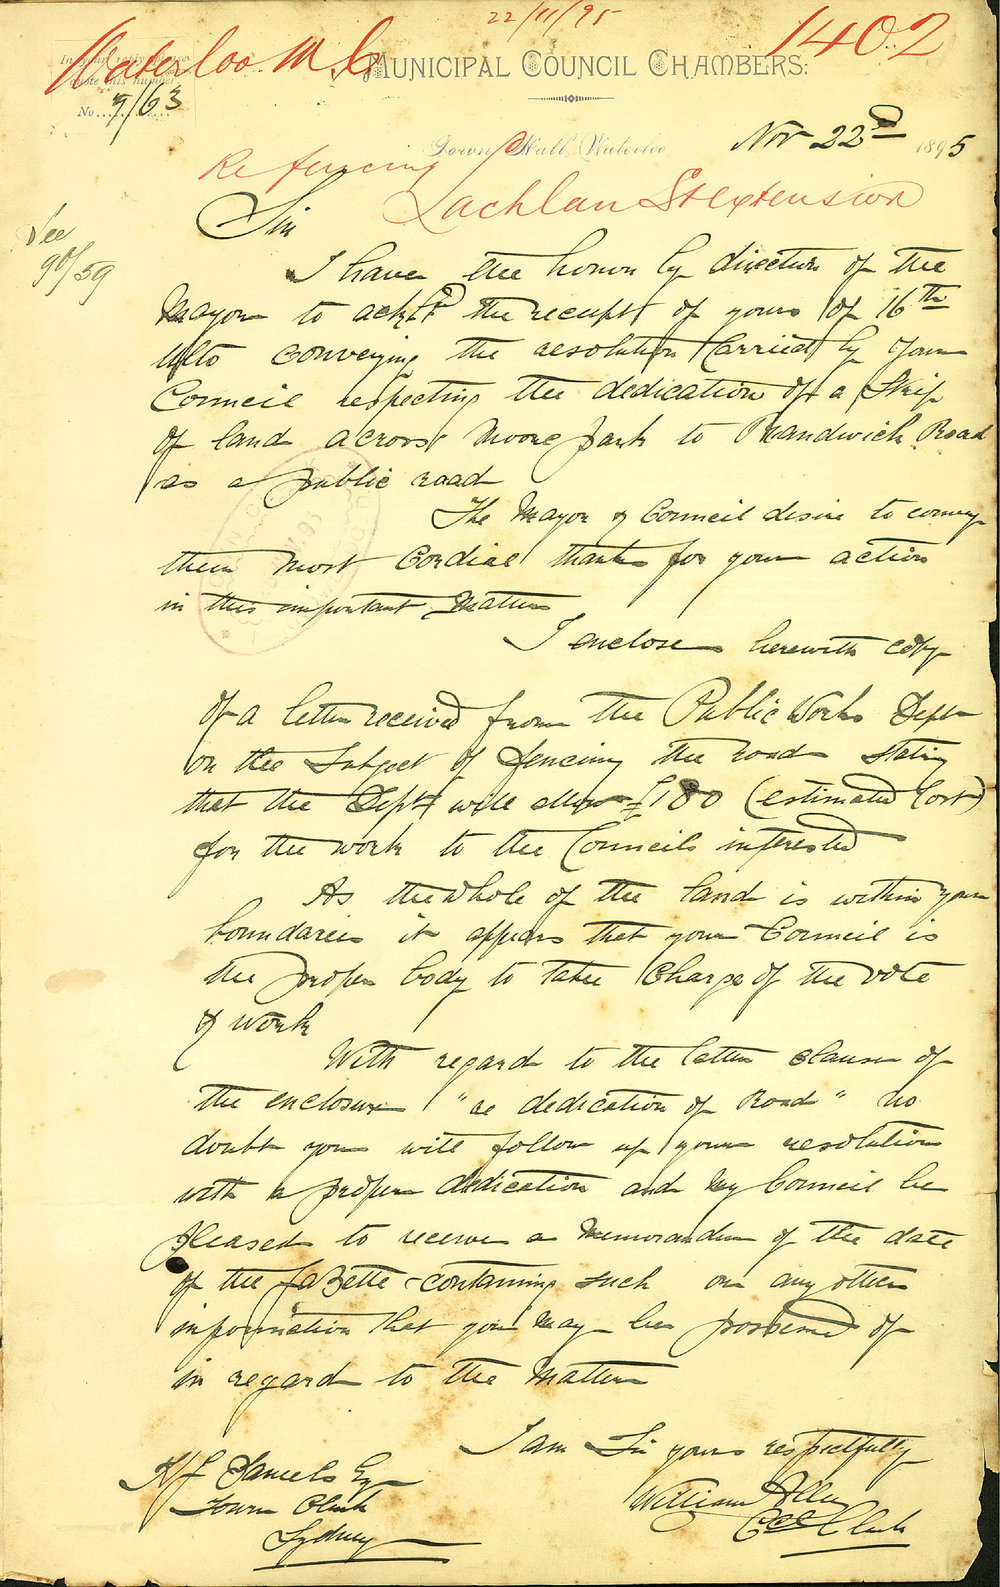 22/11/95
1402
Waterloo M.C.
MUNICIPAL COUNCIL CHAMBERS:
In your reply please
quote this number
No. 9/63
Town Hall, Waterloo
Nov 22nd 1895
Re fencing
Lachlan St extension
See
90/59
Sir
I have the honor by direction of the
Mayor to ackd the receipt of yours of 16th
Ulto conveying the resolution carried by your
Council respecting the dedication of a strip
of land across Moore park to Randwick Road
as a public road
The Mayor & Council desire to convey
their most cordial thanks for your action
in this important matter
I enclose herewith copy
of a letter received from the Public Works Dept
on the subject of fencing the road stating
that the Dept will allow £180 (estimated Cost)
for the work to the Councils interested
As the whole of the land is within your
boundaries it appears that your Council is
the proper body to take charge of the vote
& work
With regard to the latter clause of
the enclosure "re dedication of Road" no
doubt you will follow up your resolution
with a proper dedication and my Council be
pleased to receive a memorandum of the date
of the Gazette containing such or any other
information that you may be possessed of
in regard to the matter
I am Sir yours respectfully
William Allen
Ccl Clerk
H J Daniels Esq
Town Clerk
Sydney